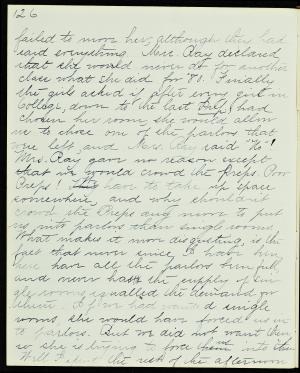 126
failed to move her, although they had
said everything. Mrs. Ray declared
that she would never do for another
class what she did for '81. Finally
the girls asked if, after every girl in
College, down to the last had
chosen her room, she would allow
us to chose one of the parlors that
were left, and Mrs. Ray said "No"!
Mrs. Ray gave no reason except
that we would crowd the Preps. Poor
Preps! have to take up space
somewhere, and why shouldn't
crowd the Preps any more to put
us into parlors than single rooms.
What makes it more disgusting, is the
fact that never since I have been
here have all the parlors been full,
and never has the supply of sin-
gle rooms equalled the demand for
them. If we had wanted single
rooms she would have forced us in-
to parlors. But we did not want them
so she is trying to force into them
the rest of the afternoon